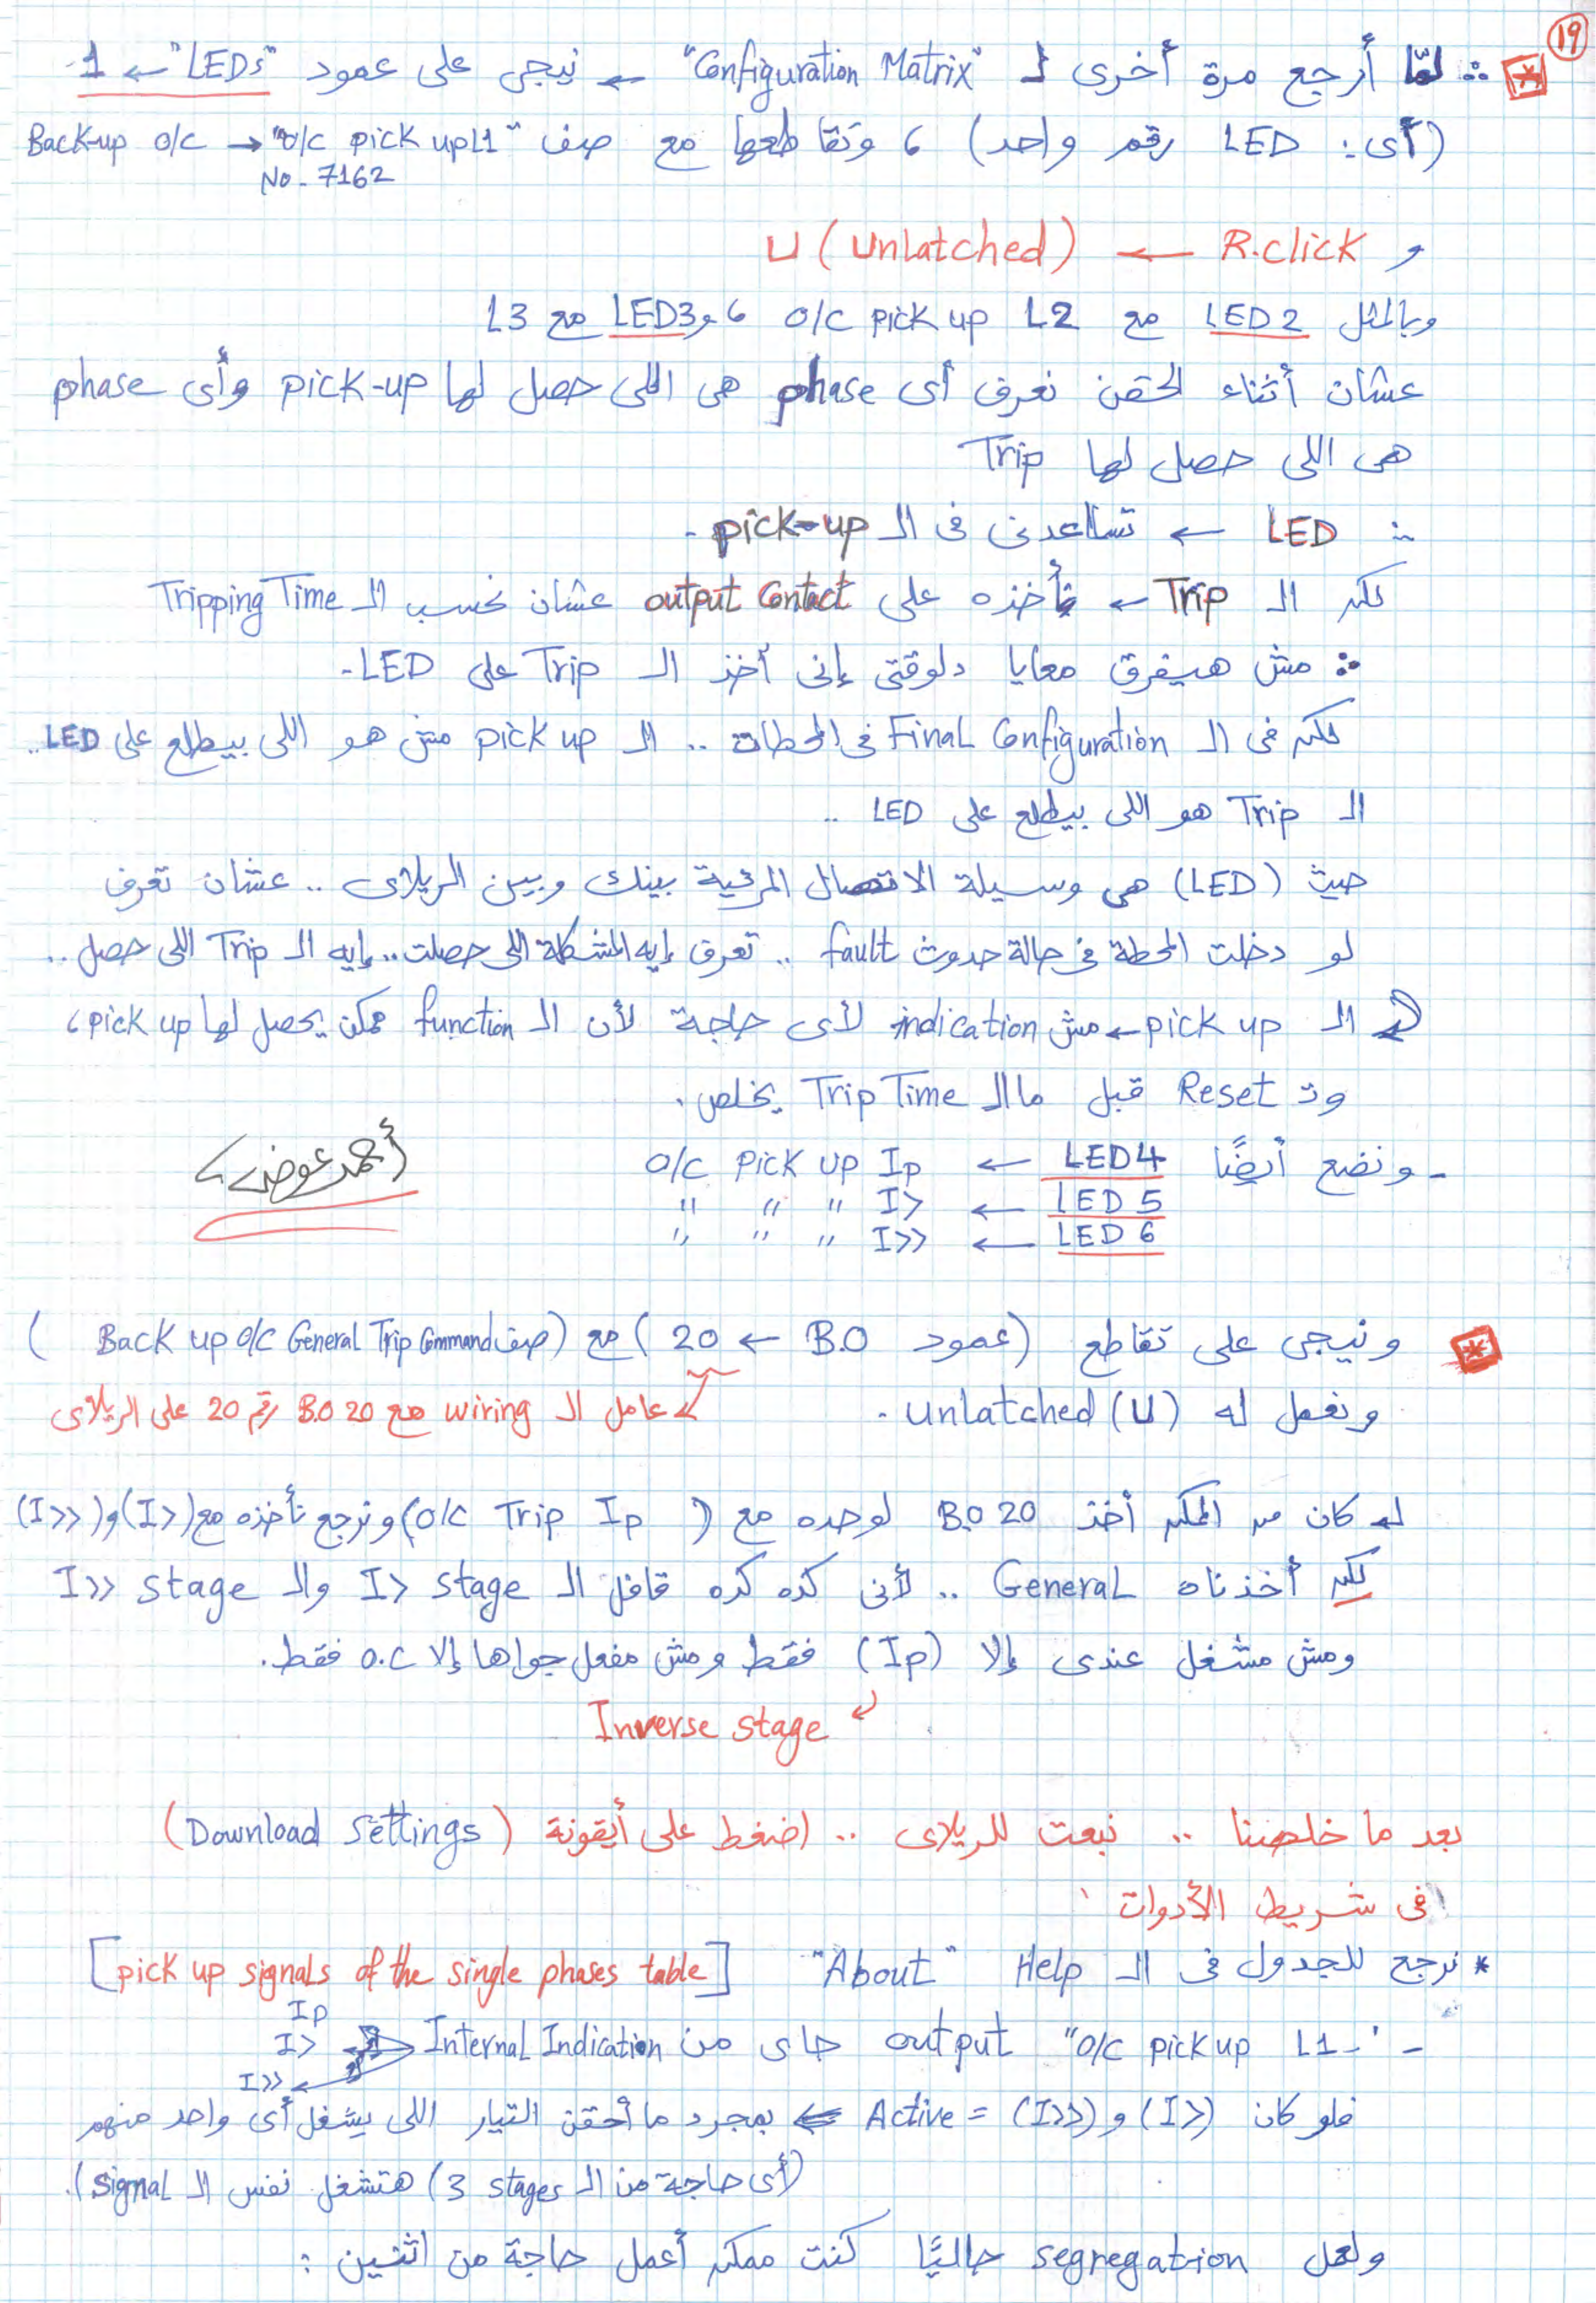 19
∴ لمّا أرجع مرة أخرى لـ "Configuration Matrix" ← نيجي على عمود "LEDs" ← 1.
(أى: LED رقم واحد) ، وتقاطعها مع صف "o/c pick up L1" → Back-up o/c
No. 7162
و R.click ← U (Unlatched)
وبالمثل LED 2 مع o/c pick up L2 ، و LED3 مع L3
عشان أثناء الحقن نعرف أى phase هى اللى حصل لها pick-up وأى phase
هى اللى حصل لها Trip
∴ LED ← تساعدنى فى الـ pick-up .
لكن الـ Trip ← نأخذه على output contact عشان نحسب الـ Tripping Time
∴ مش هيفرق معايا دلوقتى إنى أخذ الـ Trip على LED.
لكن فى الـ Final Configuration فى المحطات .. الـ pick up مش هو اللى بيطلع على LED ..
الـ Trip هو اللى بيطلع على LED ..
حيث (LED) هى وسيلة الاتصال المرئية بينك وبين الريلاى .. عشان تعرف
لو دخلت المحطة فى حالة حدوث fault .. تعرف إيه المشكلة اللى حصلت .. إيه الـ Trip اللى حصل ..
الـ pick up ← مش indication لأى حاجة لأن الـ function ممكن يحصل لها pick up ،
وتـ Reset قبل ما الـ Trip Time يخلص .
- ونضع أيضًا LED4 ← o/c pick up Ip
LED 5 ← " " " I>
LED 6 ← " " " I>>
أحمد عوض
ونيجى على تقاطع (عمود B.O ← 20) مع (صف Back up o/c General Trip Command)
ونعمل له Unlatched (U) .
عامل الـ wiring مع B.O 20 رقم 20 على الريلاى
كان من الممكن أخذ B.O 20 لوحده مع (o/c Trip Ip) ونرجع نأخذه مع (I>) و (I>>)
لكن أخذناه General .. لأنى كده كده قافل الـ I> stage والـ I>> stage
ومش مشغل عندى إلا (Ip) فقط ومش مفعل جواها إلا o.c فقط.
Inverse stage
بعد ما خلصنا .. نبعت للريلاى .. اضغط على أيقونة (Download Settings)
فى شريط الأدوات
* نرجع للجدول فى الـ Help "About" [pick up signals of the single phases table]
- "o/c pick up L1" output جاى من Internal Indication
Ip
I>
I>>
فلو كان (I>) و (I>>) = Active ⇐ بمجرد ما أحقن التيار اللى يشغل أى واحد منهم
(أى حاجة من الـ 3 stages) هتشغل نفس الـ signal).
ولعمل segregation حاليًا كنت ممكن أعمل حاجة من اثنين :